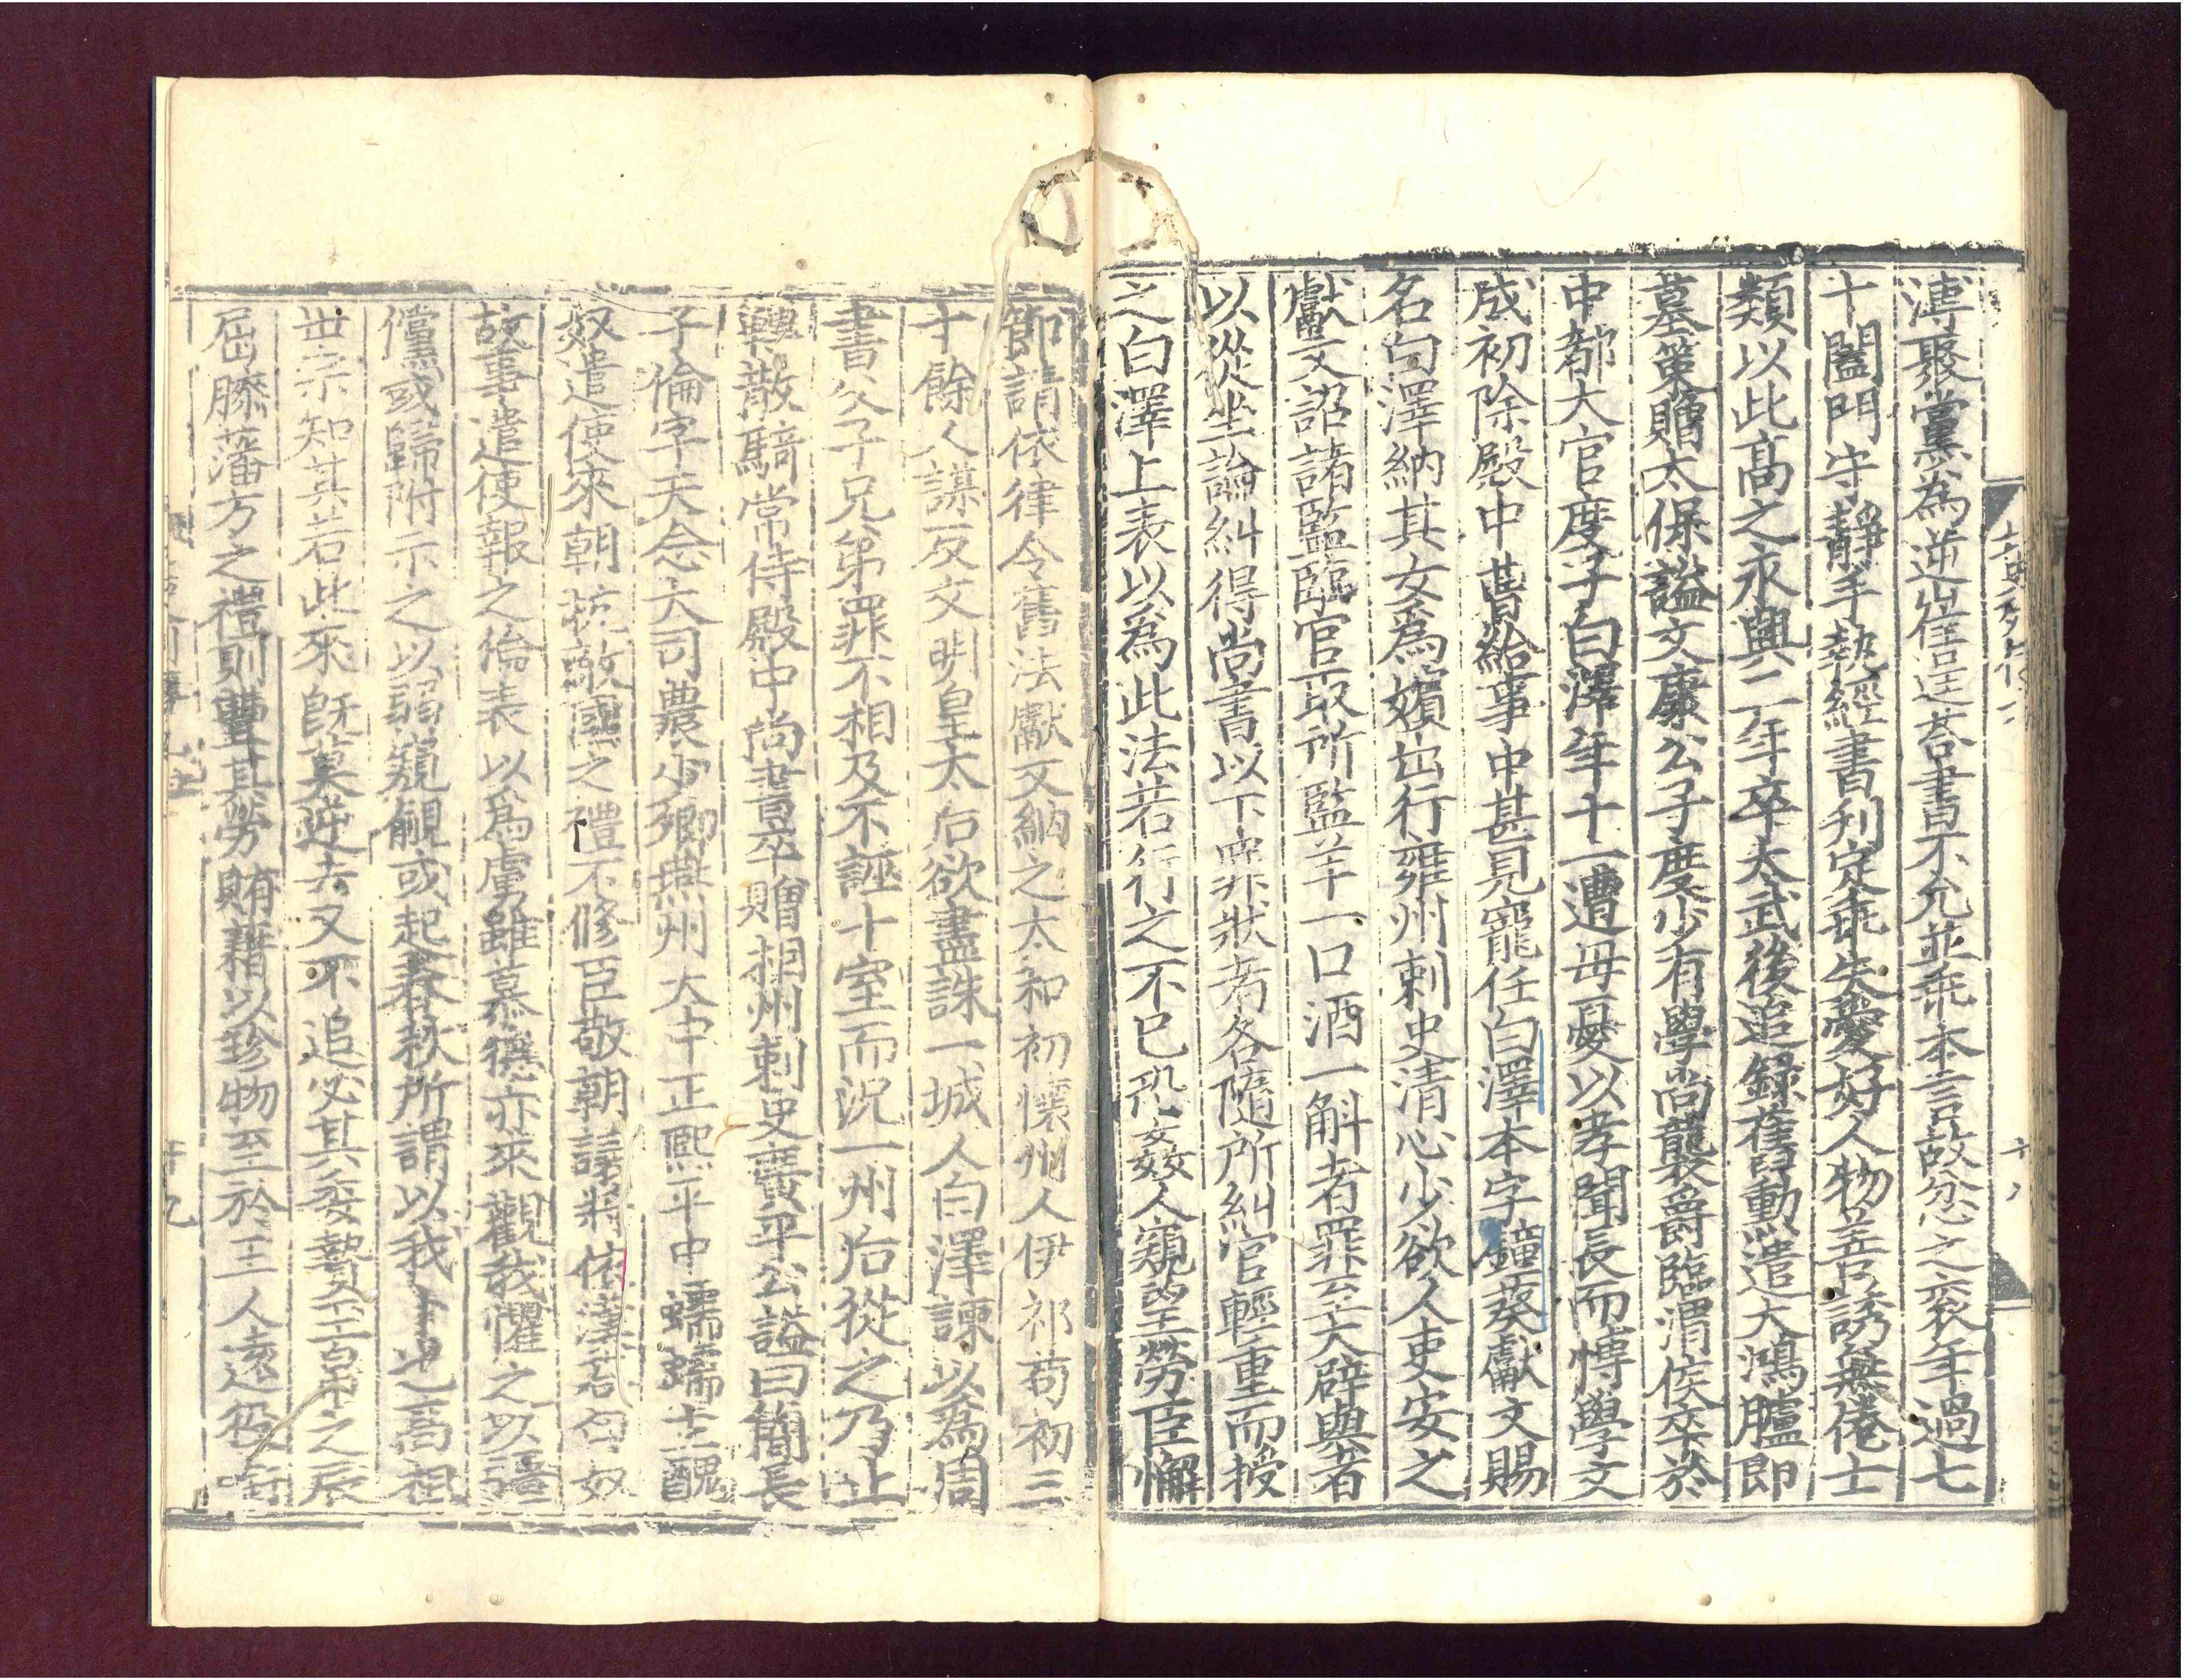 溥聚黨為逆崔逞荅書不允並乖本言故忿之衮年過七
十闔門守靜手執經書刊定乖失愛好人物善誘無倦士
類以此高之永興二年卒太武後追録舊勲遣大鴻臚即
墓策贈太保謚文康公子度少有學尚襲爵臨渭侯卒於
中都大官度子白澤年十一遭母憂以孝聞長而愽學文
成初除殿中曹給事中甚見寵任白澤本字鐘葵獻文賜
名白澤納其女為嬪出行雍州刺史清心少欲人吏安之
獻文詔諸監臨官取所監羊一口酒一斛者罪至大辟與者
以從坐論糾得尚書以下罪狀者各隨所糾官輕重而授
之白澤上表以為此法若行之不已恐姦人窺望勞臣懈
節請依律令舊法獻文納之太和初懷州人伊祁苟初三
十餘人謀反文明皇太后欲盡誅一城人白澤諫以為周
書父子兄弟罪不相及不誣十室而況一州后從之乃止
轉散騎常侍殿中尚書卒贈相州刺史廣平公謚曰簡長
子倫字天念大司農少卿燕州大中正熙平中蠕蠕主醜
奴遣使來朝抗敵國之禮不修臣敬朝議將依漢荅匈奴
故事遣使報之倫表以為虜雖慕德亦來觀我懼之以彊
儻或歸附示之以弱窺覦或起春秋所謂以我卜也高祖
世宗知其若此來既莫逆去又不追必其委贄玉帛之辰
屈膝藩方之禮則豐其勞賄藉以珍物至於王人遠役銜
北史列傳
十八
十九